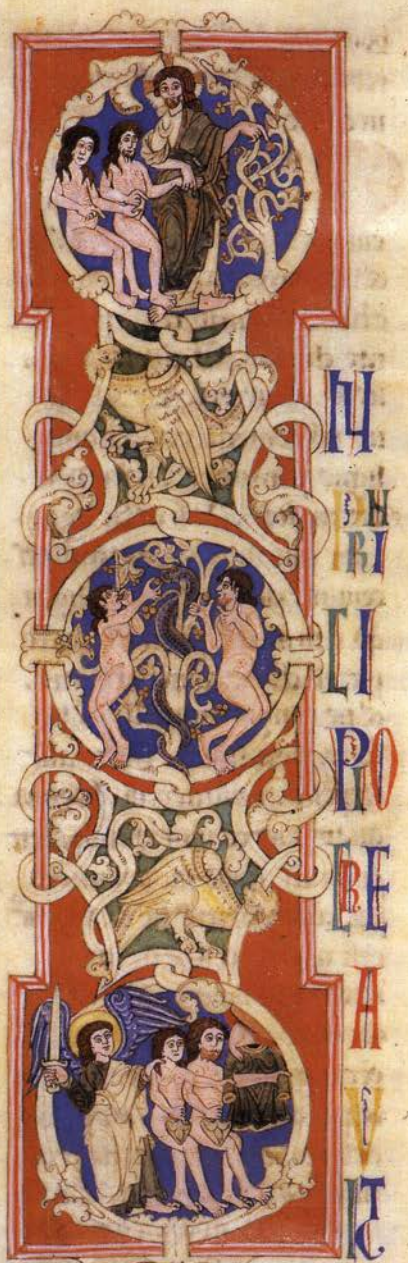 IN
PRIN
CI
PIO
CRE
A
V
IT